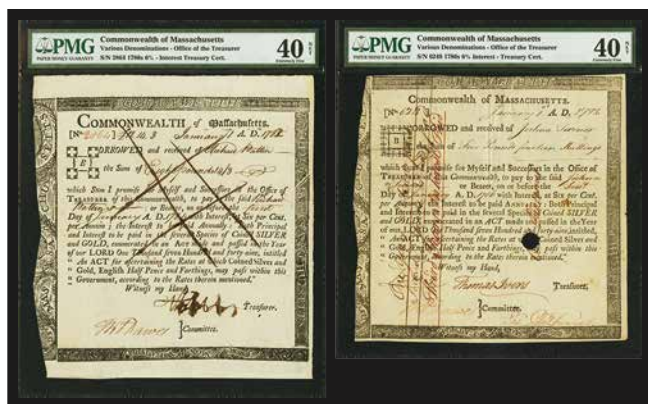 PMG
PAPER MONEY GUARANTY
Commonwealth of Massachusetts
Various Denominations - Office of the Treasurer
S/N 2064 1780s 6% - Interest Treasury Cert.
40 NET
Extremely Fine
COMMONWEALTH of Massachusetts.
January 1 A. D. 1782
BORROWED and received of
B
the Sum of
which Sum I promise for Myself and Successors in the Office of
TREASURER of this COMMONWEALTH, to pay to the said
or Bearer, on or before the First
Day of January A. D. with Interest at Six per Cent.
per Annum; the Interest to be paid Annually; Both Principal
and Interest to be paid in the several Species of Coined SILVER
and GOLD, enumerated in an Act made and passed in the Year
of our LORD One Thousand seven Hundred and forty-nine, intitled
" An ACT for ascertaining the Rates at which Coined Silver and
" Gold, English Half Pence and Farthings, may pass within this
" Government, according to the Rates therein mentioned."
Witness my Hand,
Treasurer.
Committee.
PMG
PAPER MONEY GUARANTY
Commonwealth of Massachusetts
Various Denominations - Office of the Treasurer
S/N 6248 1780s 6% Interest - Treasury Cert.
40 NET
Extremely Fine
Commonwealth of MASSACHUSETTS.
January 1 A. D. 1782
BORROWED and received of Joshua
B
the Sum of Shillings
which Sum I promise for Myself and Successors in the Office of
TREASURER of this COMMONWEALTH, to pay to the said
or Bearer, on or before the First
Day of A. D. with Interest at Six per Cent.
per Annum, Interest to be paid ANNUALLY: Both Principal
and Interest to be paid in the several Species of Coined SILVER
and GOLD, enumerated in an ACT made and passed in the Year
of our LORD, One Thousand seven Hundred and forty-nine, intitled,
" An ACT for ascertaining the Rates at which Coined Silver and
" Gold, English Half Pence and Farthings, may pass within this
" Government, according to the Rates therein mentioned."
Witness my Hand,
Thomas Ivers Treasurer,
Committee.